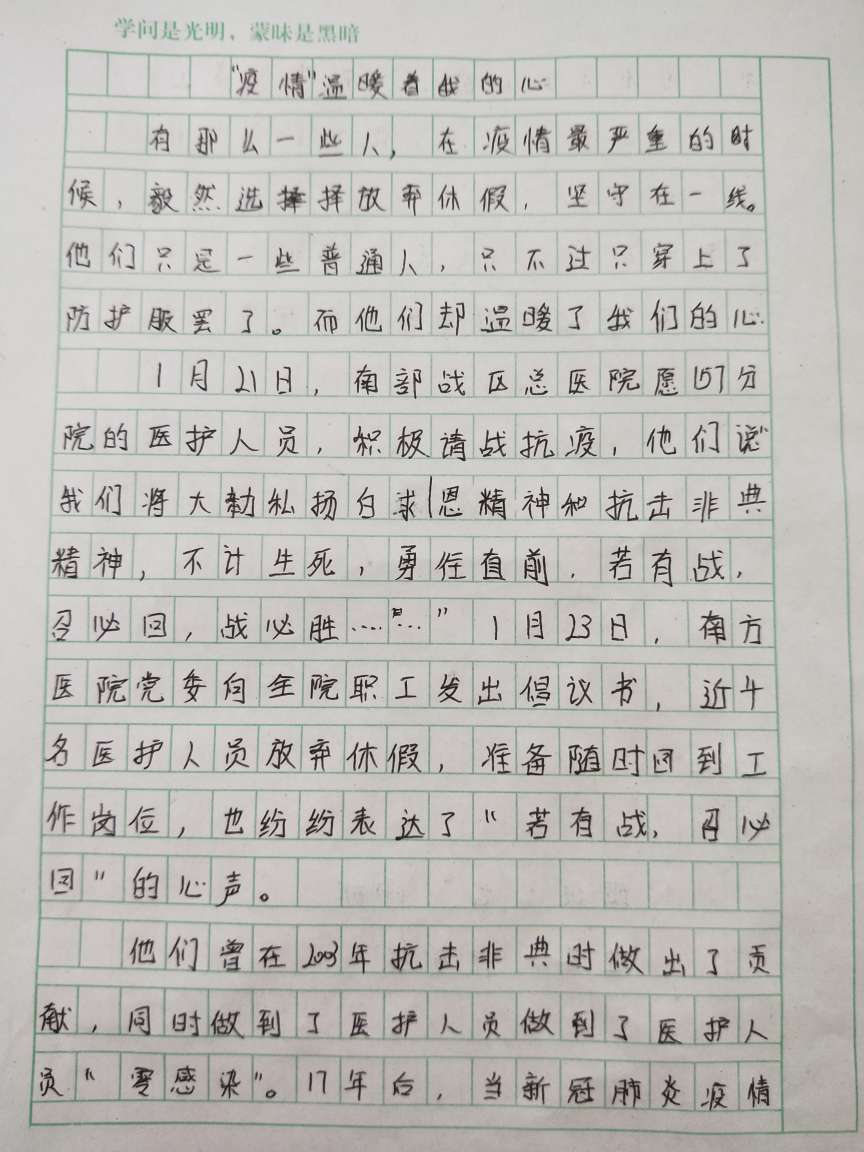 学问是光明，蒙昧是黑暗
"疫情"温暖着我的心
有那么一些人，在疫情最严重的时
候，毅然选择择放弃休假，坚守在一线。
他们只是一些普通人，只不过只穿上了
防护服罢了。而他们却温暖了我们的心.
1月21日，南部战区总医院愿157分
院的医护人员，积极请战抗疫，他们说"
我们将大勃私扬白求恩精神和抗击非典
精神，不计生死，勇往直前.若有战，
召必回，战必胜……"1月23日，南方
医院党委向全院职工发出倡议书，近千
名医护人员放弃休假，准备随时回到工
作岗位，也纷纷表达了"若有战，召必
回"的心声。
他们曾在2003年抗击非典时做出了贡
献，同时做到了医护人员做到了医护人
员"零感染"。17年后，当新冠肺炎疫情